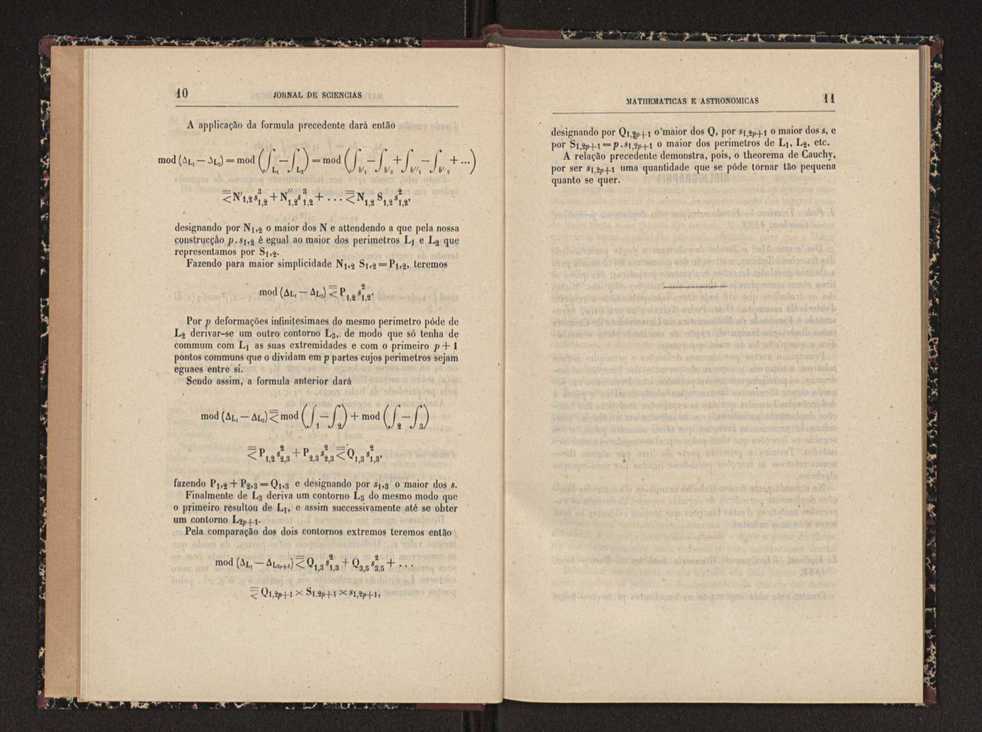 10 JORNAL DE SCIENCIAS
A applicação da formula precedente dará então
mod (Δ_{L₁} — Δ_{L₂}) = mod (∫_{L₁} — ∫_{L₂}) = mod (∫ — ∫ + ∫ — ∫ + ...)
≦ N'₁,₂ s³₁,₂ + N''₁,₂ s³₁,₂ + . . . ≦ N₁,₂ S₁,₂ s²₁,₂,
designando por N₁,₂ o maior dos N e attendendo a que pela nossa
construcção p . s₁,₂ é egual ao maior dos perimetros L₁ e L₂ que
representamos por S₁,₂.
Fazendo para maior simplicidade N₁,₂ S₁,₂ = P₁,₂, teremos
mod (Δ_{L₁} — Δ_{L₂}) ≦ P₁,₂ s²₁,₂.
Por p deformações infinitesimaes do mesmo perimetro póde de
L₂ derivar-se um outro contorno L₃, de modo que só tenha de
commum com L₁ as suas extremidades e com o primeiro p + 1
pontos communs que o dividam em p partes cujos perimetros sejam
eguaes entre si.
Sendo assim, a formula anterior dará
mod (Δ_{L₁} — Δ_{L₃}) ≦ mod (∫₁ — ∫₂) + mod (∫₂ — ∫₃)
≦ P₁,₂ s²₂,₃ + P₂,₃ s²₂,₃ ≦ Q₁,₃ s²₁,₃,
fazendo P₁,₂ + P₂,₃ = Q₁,₃ e designando por s₁,₃ o maior dos s.
Finalmente de L₃ deriva um contorno L₅ do mesmo modo que
o primeiro resultou de L₁, e assim successivamente até se obter
um contorno L_{2p+1}.
Pela comparação dos dois contornos extremos teremos então
mod (Δ_{L₁} — Δ_{L_{2p+1}}) ≦ Q₁,₃ s²₁,₃ + Q₃,₅ s²₃,₅ + . . .
≦ Q_{1,2p+1} × S_{1,2p+1} × s_{1,2p+1},
MATHEMATICAS E ASTRONOMICAS 11
designando por Q_{1,2p+1} o maior dos Q, por s_{1,2p+1} o maior dos s, e
por S_{1,2p+1} = p . s_{1,2p+1} o maior dos perimetros de L₁, L₂, etc.
A relação precedente demonstra, pois, o theorema de Cauchy,
por ser s_{1,2p+1} uma quantidade que se póde tornar tão pequena
quanto se quer.